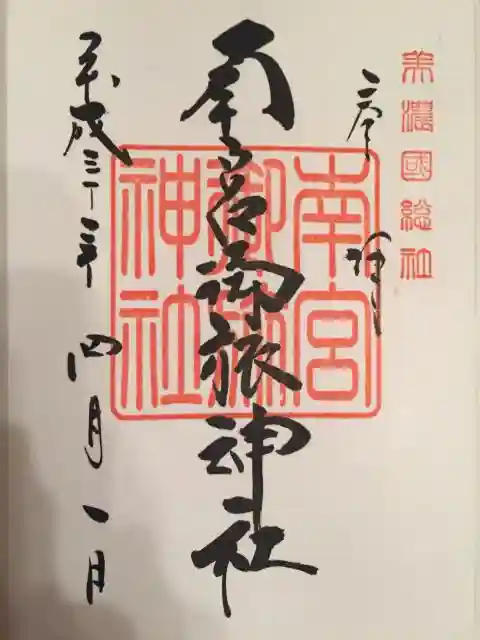 美濃國総社
奉拝
南宮御旅神社
南宮
御旅
神社
平成三十一年四月一日